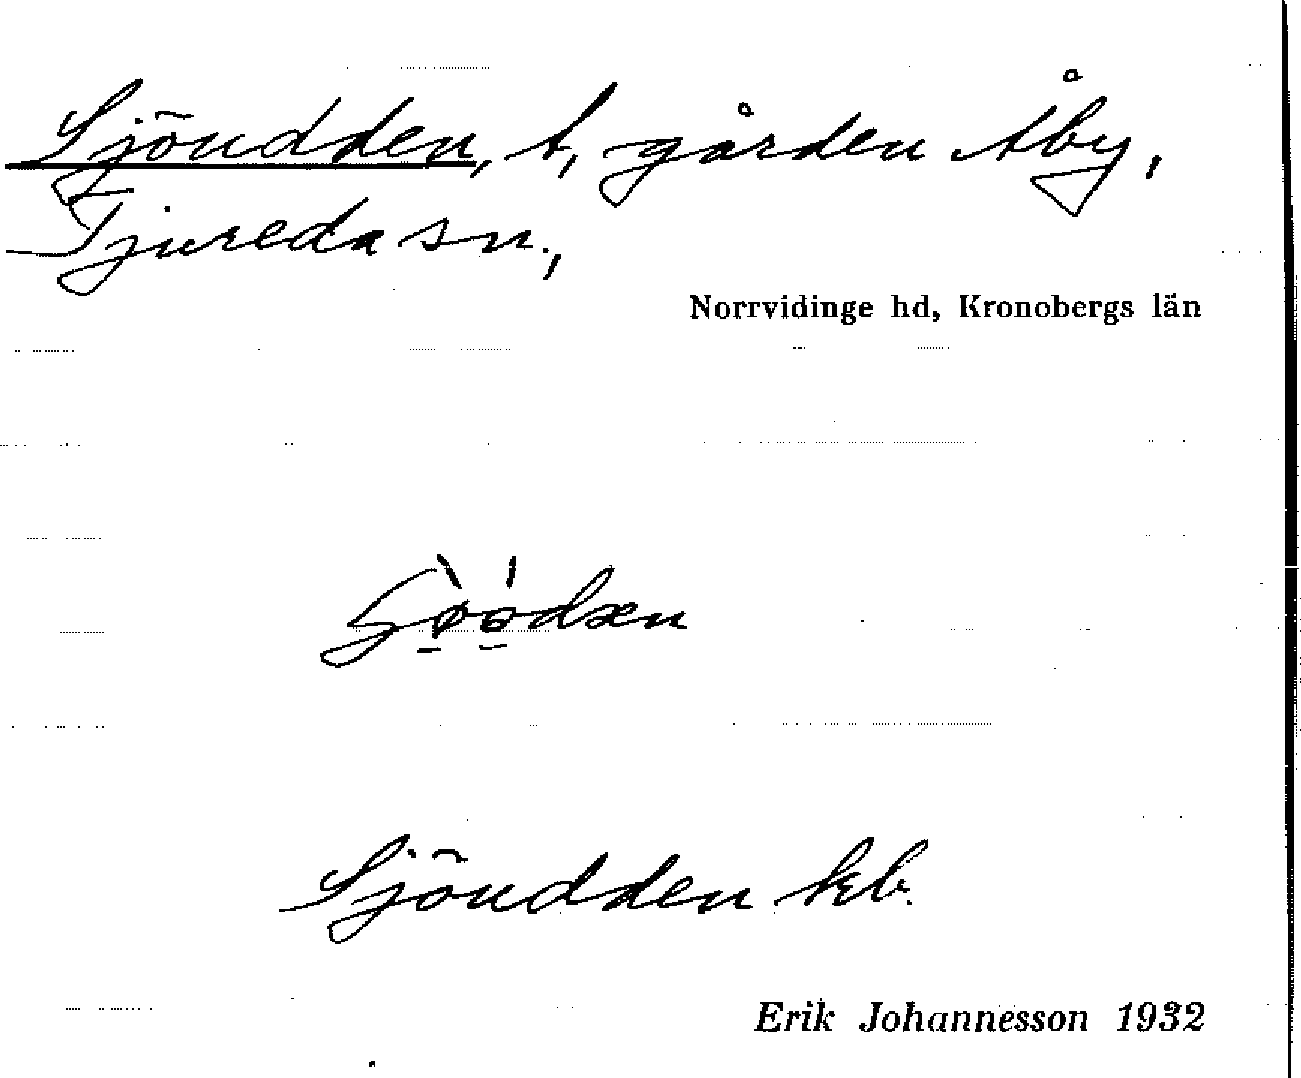 Sjöudden, t, gården Åby,
Tjureda sn.,
Norrvidinge hd, Kronobergs län
Sjöudden kb.
Erik Johannesson 1932